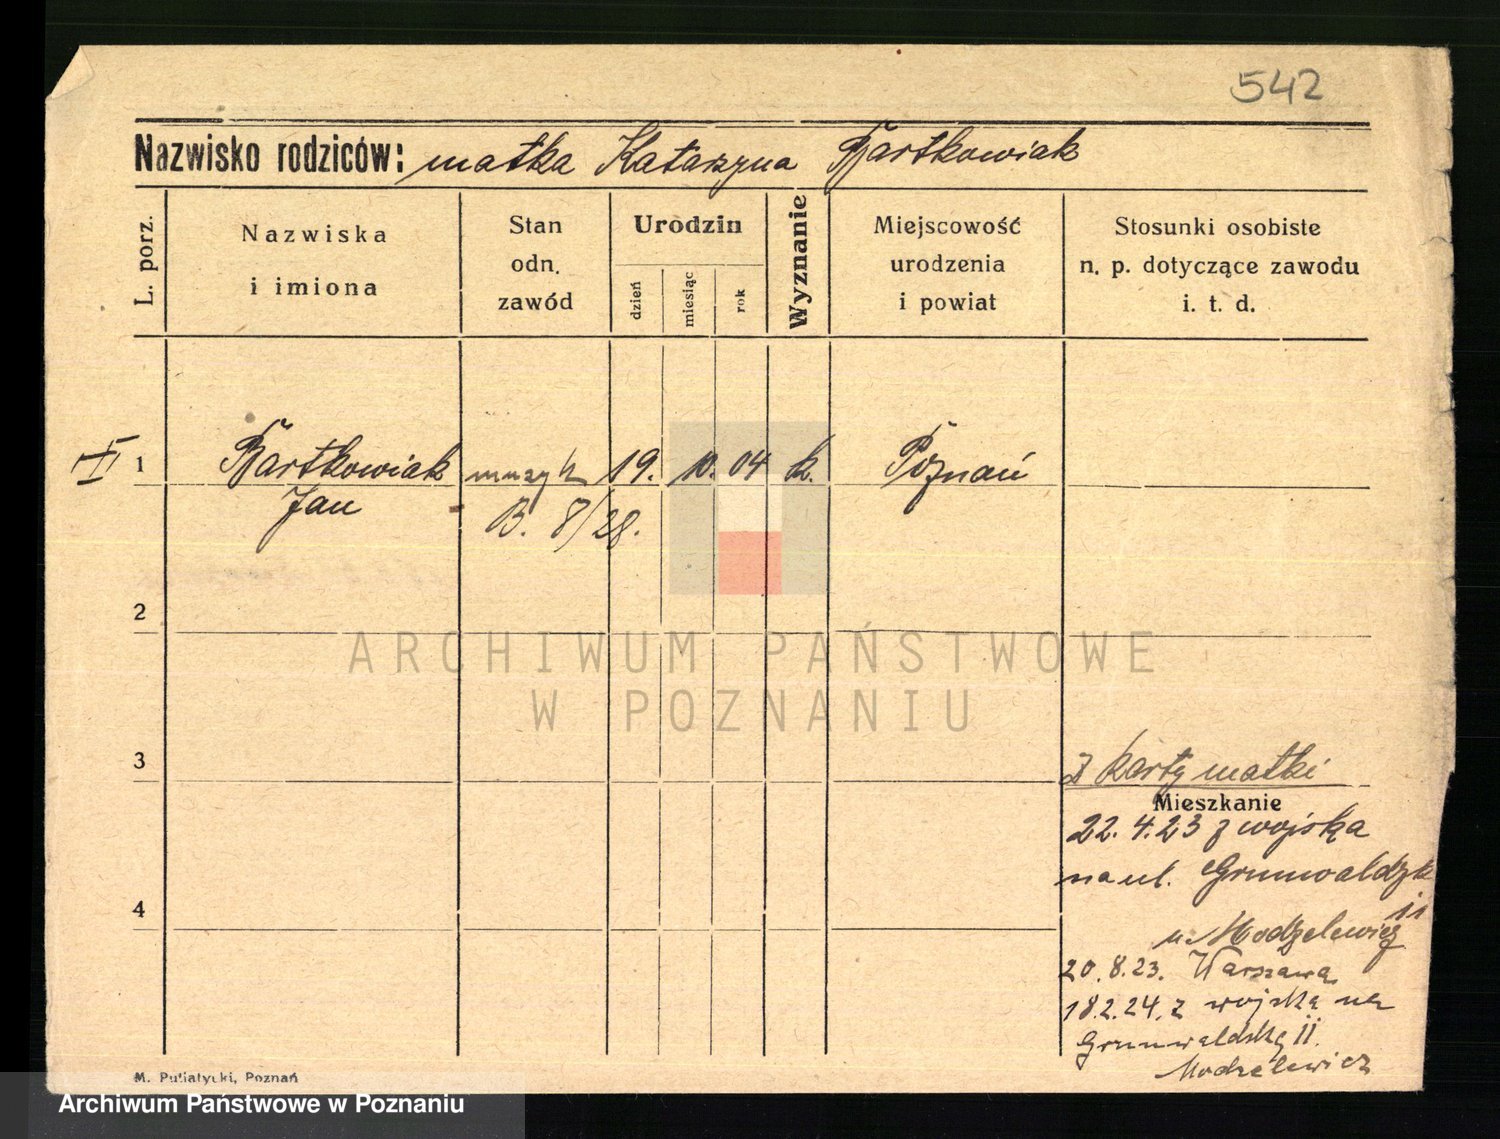 542
Nazwisko rodziców: matka Katarzyna Bartkowiak
L. porz.
Nazwiska
i imiona
Stan
odn.
zawód
Urodzin
dzień
miesiąc
rok
Wyznanie
Miejscowość
urodzenia
i powiat
Stosunki osobiste
n. p. dotyczące zawodu
i. t. d.
I 1 Bartkowiak muzyk 19. 10. 04 k. Poznań
Jan B. 8/28.
2
ARCHIWUM PAŃSTWOWE
W POZNANIU
3
z karty matki
Mieszkanie
22.4.23 z wojska
na ul. Grunwaldzk
11
u. Modzelewicz
4
20.8.23. Warszawa
18.2.24. z wojska na
Grunwaldską 11.
Modzelewicz
M. Putiatycki, Poznań
Archiwum Państwowe w Poznaniu